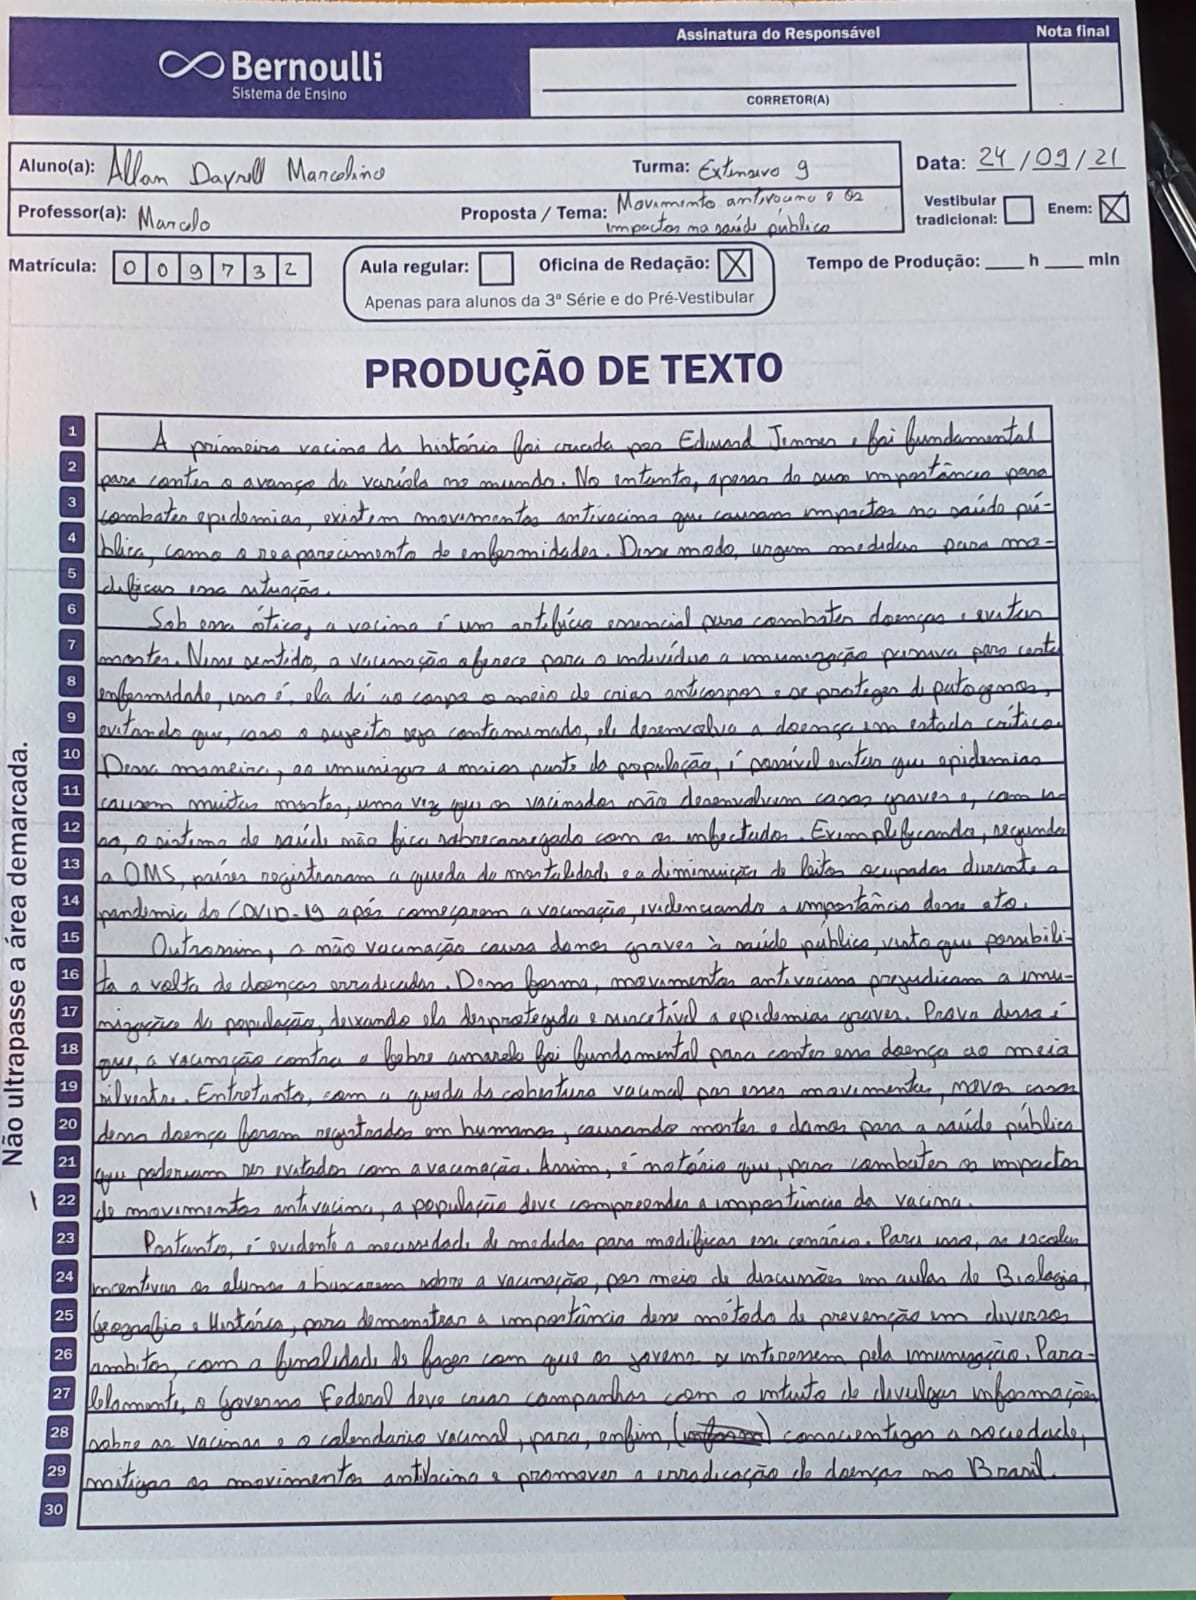 Assinatura do Responsável
Nota final
Bernoulli
Sistema de Ensino
CORRETOR(A)
Aluno(a): Allan Dayrell Marcolino
Turma: Extensivo 9
Data: 24/09/21
Professor(a): Marcelo
Proposta / Tema: Movimento antivacina e os
impactos na saúde pública
Vestibular tradicional:
Enem: X
Matrícula: 0 0 9 7 3 2
Aula regular:
Oficina de Redação: X
Apenas para alunos da 3ª Série e do Pré-Vestibular
Tempo de Produção: ____ h ____ min
PRODUÇÃO DE TEXTO
Não ultrapasse a área demarcada.
1 A primeira vacina da história foi criada por Edward Jenner e foi fundamental
2 para conter o avanço da varíola no mundo. No entanto, apesar de sua importância para
3 combater epidemias, existem movimentos antivacina que causam impactos na saúde pú-
4 blica, como o reaparecimento de enfermidades. Desse modo, urgem medidas para mo-
5 dificar essa situação.
6 Sob essa ótica, a vacina é um artifício essencial para combater doenças e evitar
7 mortes. Nesse sentido, a vacinação oferece para o indivíduo a imunização passiva para certa
8 enfermidade, isso é, ela dá ao corpo o meio de criar anticorpos e se proteger de patogenos,
9 evitando que, caso o sujeito seja contaminado, ele desenvolva a doença em estado crítico.
10 Dessa maneira, ao imunizar a maior parte da população, é possível evitar que epidemias
11 causem muitas mortes, uma vez que os vacinados não desenvolvem casos graves e, com is-
12 so, o sistema de saúde não fica sobrecarregado com os infectados. Exemplificando, segundo
13 a OMS, países registraram a queda da mortalidade e a diminuição de leitos ocupados durante a
14 pandemia do COVID-19 após começarem a vacinação, evidenciando a importância desse ato.
15 Outrossim, a não vacinação causa danos graves à saúde pública, visto que possibili-
16 ta a volta de doenças erradicadas. Dessa forma, movimentos antivacina prejudicam a imu-
17 nização da população, deixando ela desprotegida e suscetível a epidemias graves. Prova disso é
18 que, a vacinação contra a febre amarela foi fundamental para conter essa doença ao meio
19 silvestre. Entretanto, com a queda da cobertura vacinal por esses movimentos, novos casos
20 dessa doença foram registrados em humanos, causando mortes e danos para a saúde pública
21 que poderiam ser evitados com a vacinação. Assim, é notório que, para combater os impactos
22 de movimentos antivacina, a população deve compreender a importância da vacina.
23 Portanto, é evidente a necessidade de medidas para modificar esse cenário. Para isso, as escolas
24 incentivar os alunos a buscarem sobre a vacinação, por meio de discussões em aulas de Biologia,
25 Geografia e História, para demonstrar a importância desse método de prevenção em diversos
26 ambitos, com a finalidade de fazer com que os jovens se interessem pela imunização. Para-
27 lelamente, o Governo Federal deve criar campanhas com o intuito de divulgar informações
28 sobre as vacinas e o calendario vacinal, para, enfim, conscientizar a sociedade,
29 mitigar os movimentos antivacina e promover a erradicação de doenças no Brasil.
30